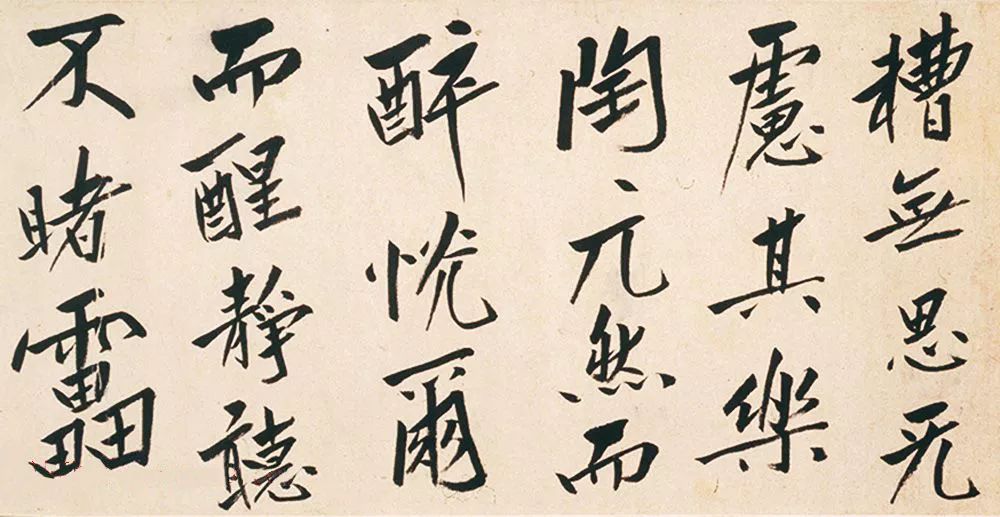 槽無思无
慮其樂
陶、兀然而
醉恍爾
而醒靜聽
不睹靁